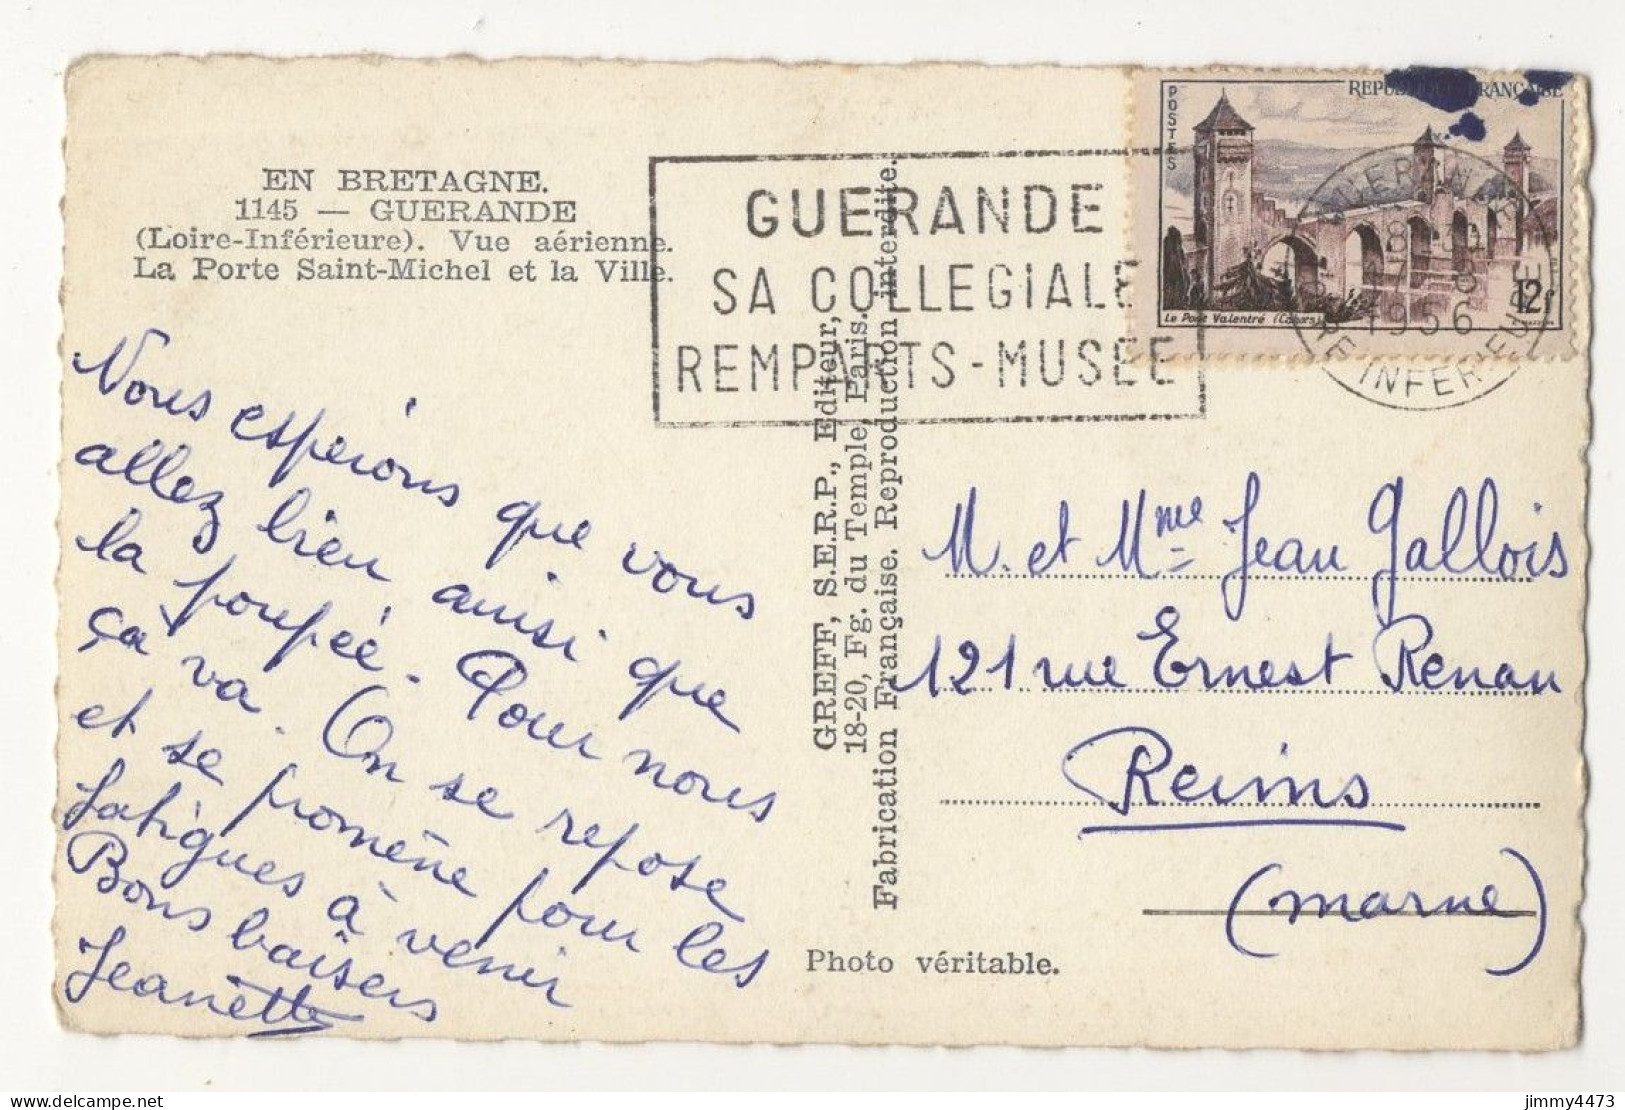 EN BRETAGNE.
1145 — GUERANDE
(Loire-Inférieure). Vue aérienne.
La Porte Saint-Michel et la Ville.
GUERANDE
SA COLLEGIALE
REMPARTS - MUSEE
POSTES
REPUBLIQUE FRANÇAISE
Le Pont Valentré (Cahors)
12f
GUERANDE
1956
LOIRE INFERIEURE
Nous espérons que vous
allez bien ainsi que
la poupée. Pour nous
ça va. On se repose
et se promène pour les
fatigues à venir
Bons baisers
Jeanette
GREFF, S.E.R.P., Editeur,
18-20, Fg. du Temple, Paris.
Fabrication Française. Reproduction interdite.
M. et Mme Jean Gallois
121 rue Ernest Renan
Reims
(Marne)
Photo véritable.
jimmy4473
delcampe.net